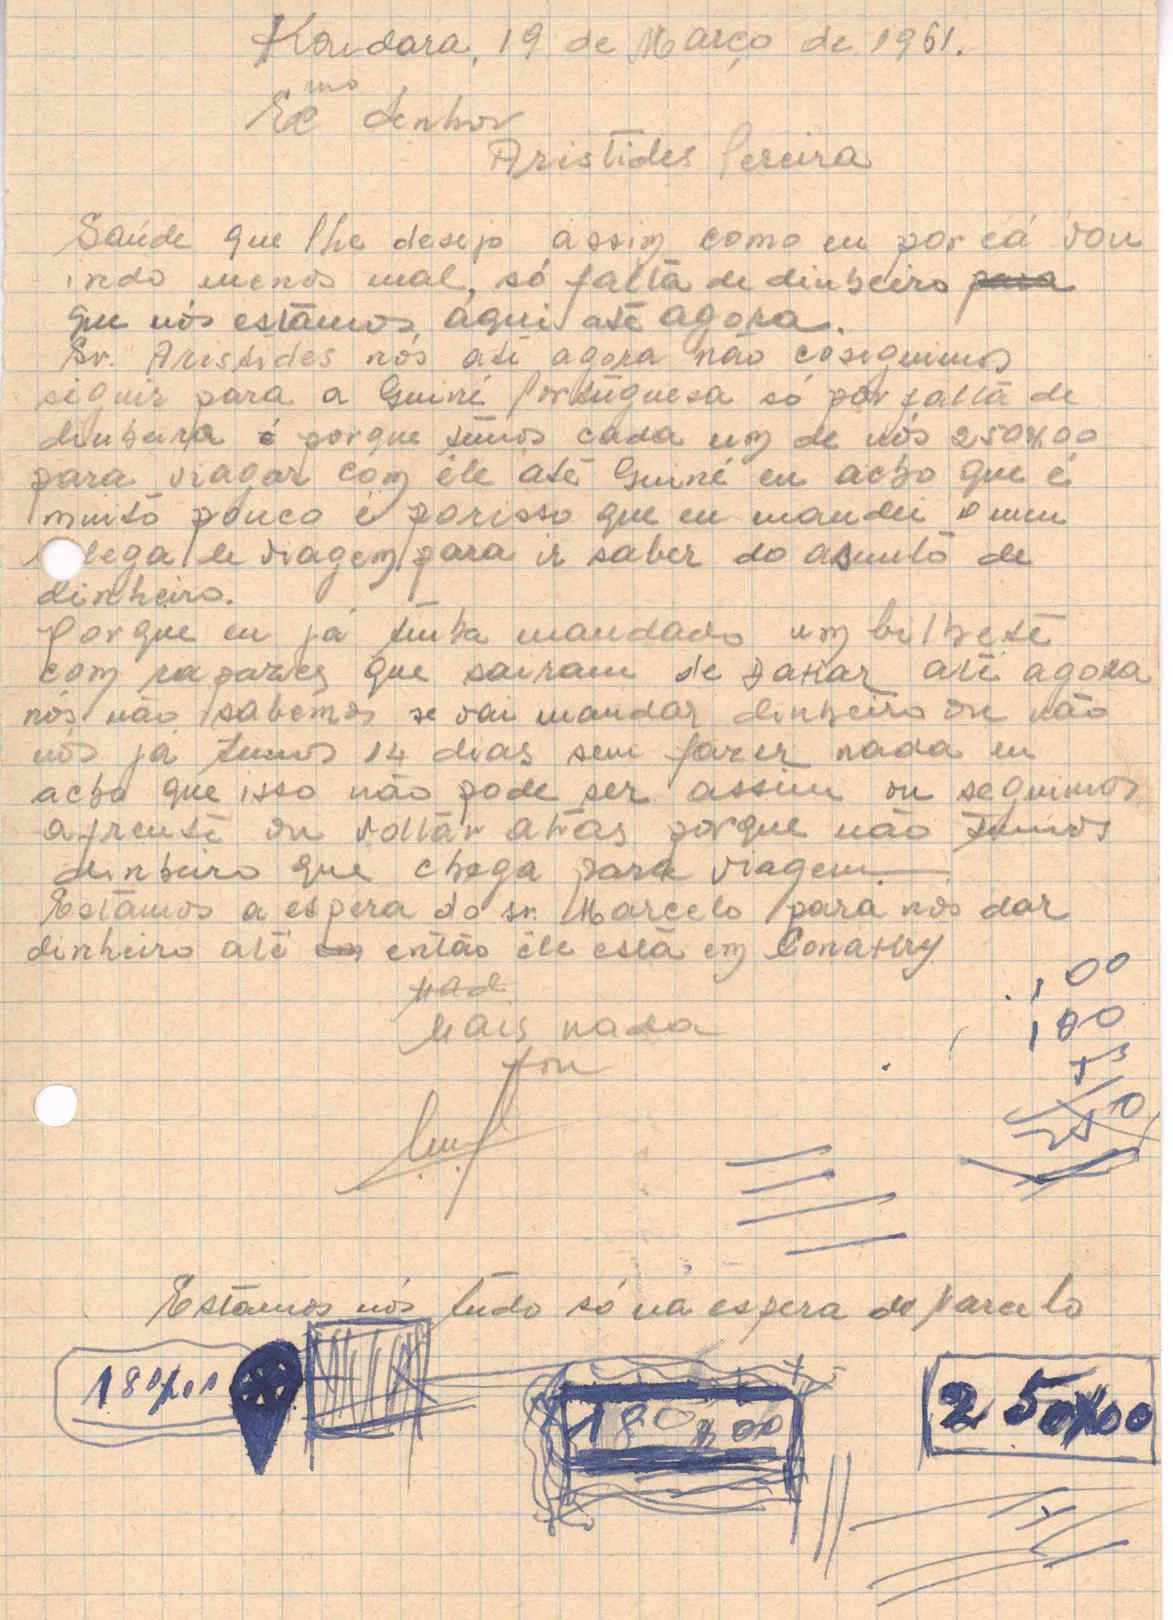 Koundara, 19 de Março de 1961.
Exmo Senhor
Aristídes Pereira
Saúde que lhe desejo assim como eu por cá vou
indo menos mal, só falta de dinheiro para
que nós estâmos aqui até agora.
Sr. Aristídes nós até agora não coseguimos
siguir para a Guiné Portuguesa só por falta de
dinheiro é porque temos cada um de nós 250$00
para viagar com êle até Guiné eu acho que é
muito pouco é porisso que eu mandei o meu
colega de viagem para ir saber do asunto de
dinheiro.
Porque eu já tinha mandado um bilhete
com raparies que sairam de Dakar até agora
nós não sabemos se vai mandar dinheiro ou não
nós já temos 14 dias sem fazer nada eu
acho que isso não pode ser assim ou seguimos
a frente ou voltar atras porque não temos
dinheiro que chega para viagem
Estâmos a espera do sr. Marcelo para nos dar
dinheiro até então êle está em Conakry
nad
Mais nada
Estâmos nós tudo só na espera de Marcelo
100
180
180$00
180$00
250$00